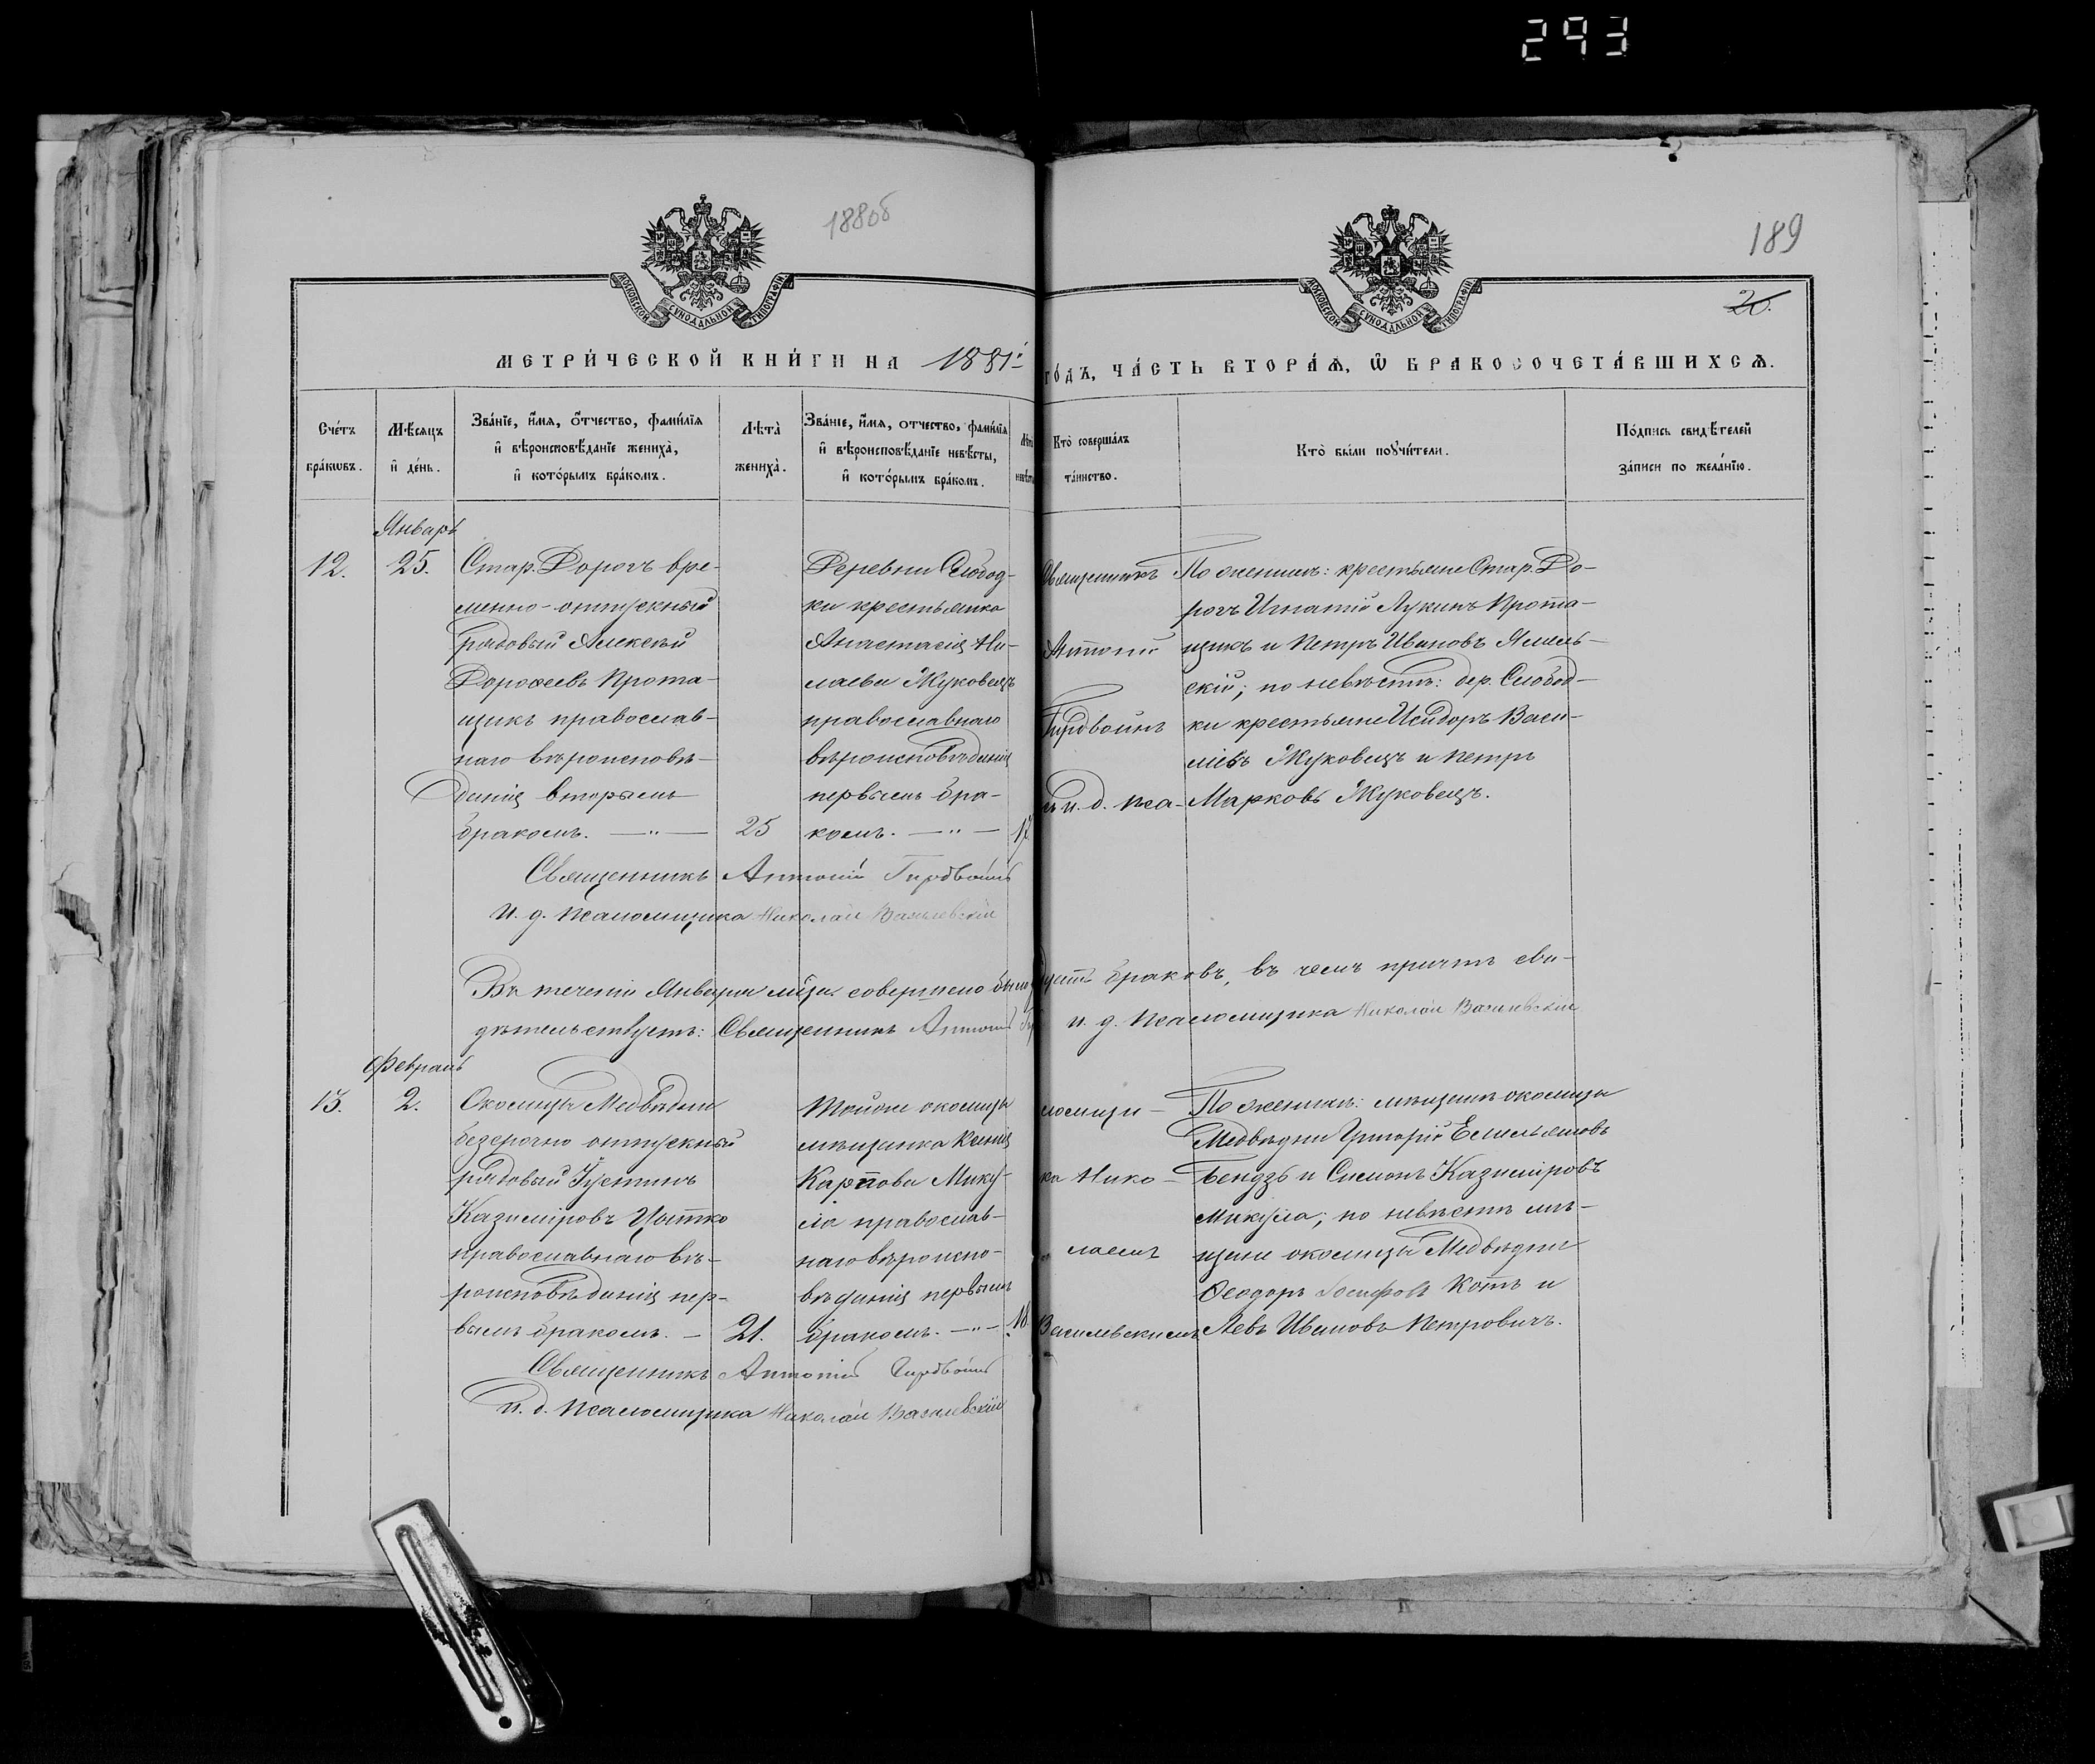 293
188об
189
20.
МОСКОВСКОЙ СУНОДАЛЬНОЙ ТИПОГРАФІИ
МОСКОВСКОЙ СУНОДАЛЬНОЙ ТИПОГРАФІИ
МЕТРИ́ЧЕСКОЙ КНИ́ГИ НА 1881й ГО́ДЪ, ЧА́СТЬ ВТОРА́Ѧ, Ѡ҆ БРАКОСОЧЕТА́ВШИХСѦ.
Сче́тъ бра́кѡвъ.
Мѣ́сяцъ и҆ де́нь.
Зва́нїе, и҆́мя, о҆́тчество, фами́лїя и҆ вѣроисповѣ́данїе жениха̀, и҆ кото́рымъ бра́комъ.
Лѣта̀ жениха̀.
Зва́нїе, и҆́мя, отчество, фами́лїя и҆ вѣроисповѣ́данїе невѣ́сты, и҆ кото́рымъ бра́комъ.
Кто̀ соверша́лъ та́инство.
Кто̀ бы́ли порꙋчи́тели.
По́дпись свидѣ́телей за́писи по жела́нїю.
Январь
12.
25.
Стар. Дорогъ вре-
менно-отпускный
рядовый Алексѣй
Дороѳеевъ Прота-
щикъ православ-
наго вѣроисповѣ-
данія вторымъ
бракомъ. —"—
25
Деревни Слобод-
ки крестьянка
Анастасія Ни-
лаева Жуковецъ
православнаго
вѣроисповѣданія
первымъ бра-
комъ. —"—
17
Священникъ
Антоній
Гирдвоинъ
съ и. д. пса-
По женихѣ: крестьяне Стар. До-
рогъ Игнатій Лукинъ Прота-
щикъ и Петръ Ивановъ
скій; по невѣстѣ: дер. Слобод-
ки крестьяне Исидоръ Васи-
ліевъ Жуковецъ и Петръ
Марковъ Жуковецъ.
Священникъ Антоній Гирдвоинъ
И. д. псаломщика Николай Василевскій
Въ теченіи Января мѣсяц. совершено браковъ, въ чемъ причтъ сви-
дѣтельствуетъ: Священникъ Антоній и. д. псаломщика Николай Василевскій
Февраль
13.
2.
Околицы Медвѣдни
безсрочно отпускный
рядовый Іустинъ
Казиміровъ Цытко
православнаго вѣ-
роисповѣданія пер-
вымъ бракомъ. —
21.
Тойже околицы
мѣщанка Ксенія
Карпова Мику-
ла православ-
наго вѣроиспо-
вѣданія первымъ
бракомъ. —"—
18
ломщи-
ка Нико-
лаемъ
Василевскимъ
По женихѣ: мѣщане околицы
Медвѣдни Григорій Емельяновъ
Бендзь и Симонъ Казиміровъ
Микула; по невѣстѣ мѣ-
щане околицы Медвѣдни
Ѳеодоръ Іосифовъ Котъ и
Левъ Ивановъ Петровичъ.
Священникъ Антоній Гирдвоинъ
И. д. псаломщика Николай Василевскій